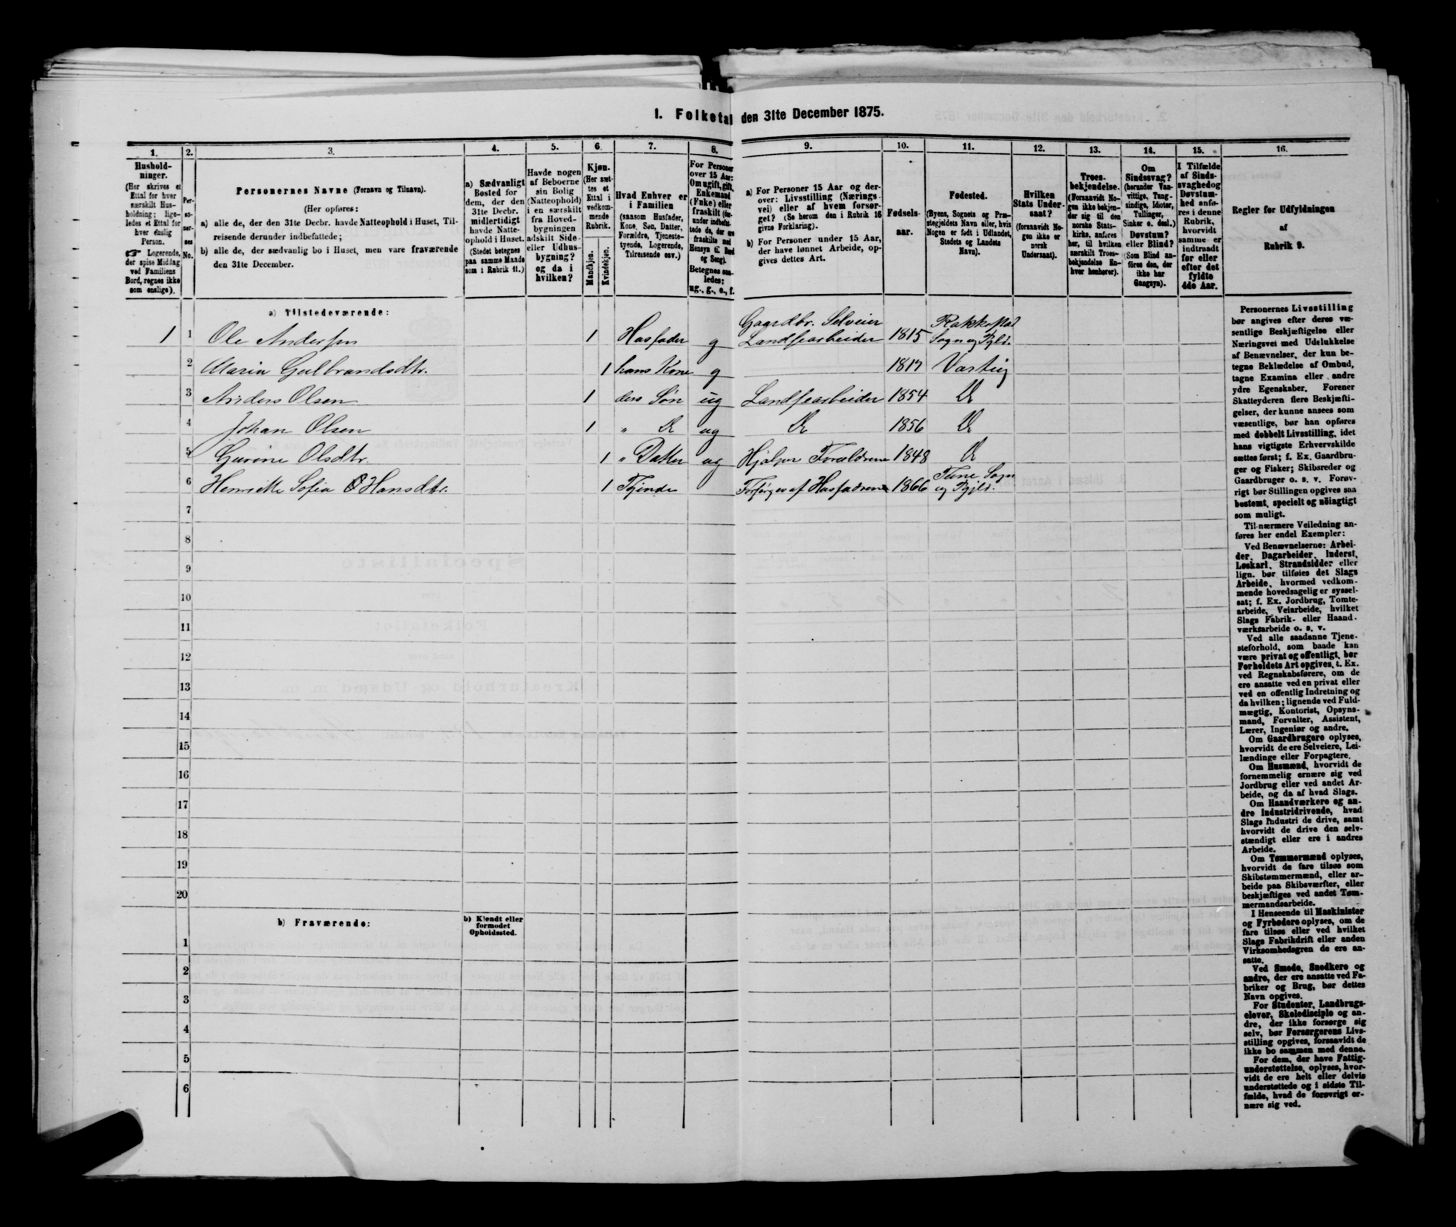 1. Folketal den 31te December 1875.
1. 2. 3. 4. 5. 6. 7. 8. 9. 10. 11. 12. 13. 14. 15. 16.
Hushold-
ninger.
(Her skrives et
Ettal for hver
særskilt Hus-
holdning; lige-
ledes et Ettal for
hver enslig
Person.
☞ Logerende,
der spise Middag
ved Familiens
Bord, regnes ikke
som enslige).
Per-
so-
ner-
nes
No.
Personernes Navne (Fornavn og Tilnavn).
(Her opføres:
a) alle de, der den 31te Decbr. havde Natteophold i Huset, Til-
reisende derunder indbefattede;
b) alle de, der sædvanlig bo i Huset, men vare fraværende
den 31te December.
a) Sædvanligt
Bosted for
dem, der den
31te Decbr.
midlertidigt
havde Natte-
ophold i Huset.
(Stedet betegnes
paa samme Maade
som i Rubrik 11.)
Havde nogen
af Beboerne
sin Bolig
(Natteophold)
i en særskilt
fra Hoved-
bygningen
adskilt Side-
eller Udhus-
bygning?
og da i
hvilken?
Kjøn.
(Her sæt-
tes et
Ettal i
vedkom-
mende
Rubrik.
Mandkjøn.
Kvindekjøn.
Hvad Enhver er
i Familien
(saasom Husfader,
Kone, Søn, Datter,
Forældre, Tjeneste-
tyende, Logerende,
Tilreisende osv.)
For Personer
over 15 Aar:
Om ugift, gift,
Enkemand
(Enke) eller
fraskilt (for-
under indbefat-
tede de, der ere
fraskilte med
Hensyn til Bord
og Seng).
Betegnes saa-
ledes:
ug., g., e., f.
a) For Personer 15 Aar og der-
over: Livsstilling (Nærings-
vei) eller af hvem forsør-
get? (Se herom den i Rubrik 16
givne Forklaring).
b) For Personer under 15 Aar,
der have lønnet Arbeide, op-
gives dettes Art.
Fødsels-
aar.
Fødested.
(Byens, Sognets og Præ-
stegjeldets Navn eller, hvis
Nogen er født i Udlandet,
Stedets og Landets
Navn).
Hvilken
Stats Under-
saat?
(forsaavidt No-
gen ikke er
norsk
Undersaat).
Troes-
bekjendelse.
(Forsaavidt No-
gen ikke bekjen-
der sig til den
norske Stats-
kirke, anføres
her, til hvilken
særskilt Troes-
bekjendelse En-
hver henhører).
Om
Sindssvag?
(herunder Van-
vittige, Tung-
sindige, Idioter,
Tullinger,
Sinker o. desl.)
Døvstum?
eller Blind?
(Som Blind an-
føres den, der
ikke har
Gangsyn).
I Tilfælde
af Sinds-
svaghed og
Døvstum-
hed anfø-
res i denne
Rubrik,
hvorvidt
samme er
indtraadt
før eller
efter det
fyldte
4de Aar.
Regler for Udfyldningen
af
Rubrik 9.
a) Tilstedeværende:
1 1 Ole Andersen 1 Husfader g Gaardbr. Selveier Landsearbeider 1815 Rakkestad Sogn og Pgld.
2 Maria Gulbrandsdtr. 1 hans Kone g 1817 Varteig
3 Anders Olsen 1 ders Søn ug Landsearbeider 1854 do
4 Johan Olsen 1 " do ug do 1856 do
5 Gurine Olsdtr. 1 " Datter ug Hjælper Forældrene 1848 do
6 Henrette Sofia Hansdtr. 1 Tyende Forsørges af Husfaderen 1866 Tune Sogn og Pgjld.
7
8
9
10
11
12
13
14
15
16
17
18
19
20
b) Fraværende:
b) Kjendt eller
formodet
Opholdssted.
1
2
3
4
5
6
Personernes Livsstilling
bør angives efter deres væ-
sentlige Beskjæftigelse eller
Næringsvei med Udelukkelse
af Benævnelser, der kun be-
tegne Beklædelse af Ombud,
tagne Examina eller andre
ydre Egenskaber. Forener
Skatteyderen flere Beskjæfti-
gelser, der kunne ansees som
væsentlige, bør han opføres
med dobbelt Livsstilling, idet
hans vigtigste Erhvervskilde
sættes først; f. Ex. Gaardbru-
ger og Fisker; Skibsreder og
Gaardbruger o. s. v. Forøv-
rigt bør Stillingen opgives saa
bestemt, specielt og nøiagtigt
som muligt.
Til nærmere Veiledning an-
føres her endel Exempler:
Ved Benævnelserne: Arbei-
der, Dagarbeider, Inderst,
Løskarl, Strandsidder eller
lign. bør tilføies det Slags
Arbeide, hvormed vedkom-
mende hovedsagelig er syssel-
sat; f. Ex. Jordbrug, Tomte-
arbeide, Veiarbeide, hvilket
Slags Fabrik- eller Haand-
værksarbeide o. s. v.
Ved alle saadanne Tjene-
steforhold, som baade kan
være privat og offentligt, bør
Forholdets Art opgives, t. Ex.
ved Regnskabsførere, om de
ere ansatte ved en privat eller
ved en offentlig Indretning og
da hvilken; lignende ved Fuld-
mægtig, Kontorist, Opsyns-
mand, Forvalter, Assistent,
Lærer, Ingeniør og andre.
Om Gaardbrugere oplyses,
hvorvidt de ere Selveiere, Lei-
lændinge eller Forpagtere.
Om Husmænd, hvorvidt de
fornemmelig ernære sig ved
Jordbrug eller ved andet Ar-
beide, og da af hvad Slags.
Om Haandværkere og an-
dre Industridrivende, hvad
Slags Industri de drive, samt
hvorvidt de drive den selv-
stændigt eller ere i andres
Arbeide.
Om Tømmermænd oplyses,
hvorvidt de fare tilsøs som
Skibstømmermænd, eller ar-
beide paa Skibsværfter, eller
beskjæftiges ved andet Tøm-
mermandsarbeide.
I Henseende til Maskinister
og Fyrbødere oplyses, om de
fare tilsøs eller ved hvilket
Slags Fabrikdrift eller anden
Virksomhedsgren de ere an-
satte.
Ved Smede, Snedkere og
andre, der ere ansatte ved Fa-
briker og Brug, bør dettes
Navn opgives.
For Studenter, Landbrugs-
elever, Skoledisciple og an-
dre, der ikke forsørge sig
selv, bør Forsørgerens Livs-
stilling opgives, forsaavidt de
ikke bo sammen med denne.
For dem, der have Fattig-
understøttelse, oplyses, hvor-
vidt de ere helt eller delvis
understøttede og i sidste Til-
fælde, hvad de forøvrigt er-
nære sig ved.